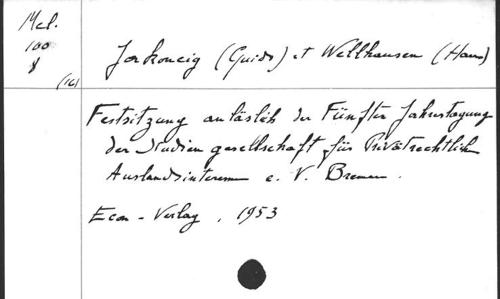 Mel.
100
8
(16)
Jerkoncig (Guido) et Wellhausen (Hans)
Festsitzung anläslich der Fünften Jahrestagung
der Studien gesellschaft für Privatrechtliche
Auslandsinteressen e. V. Bremen.
Econ - Verlag, 1953